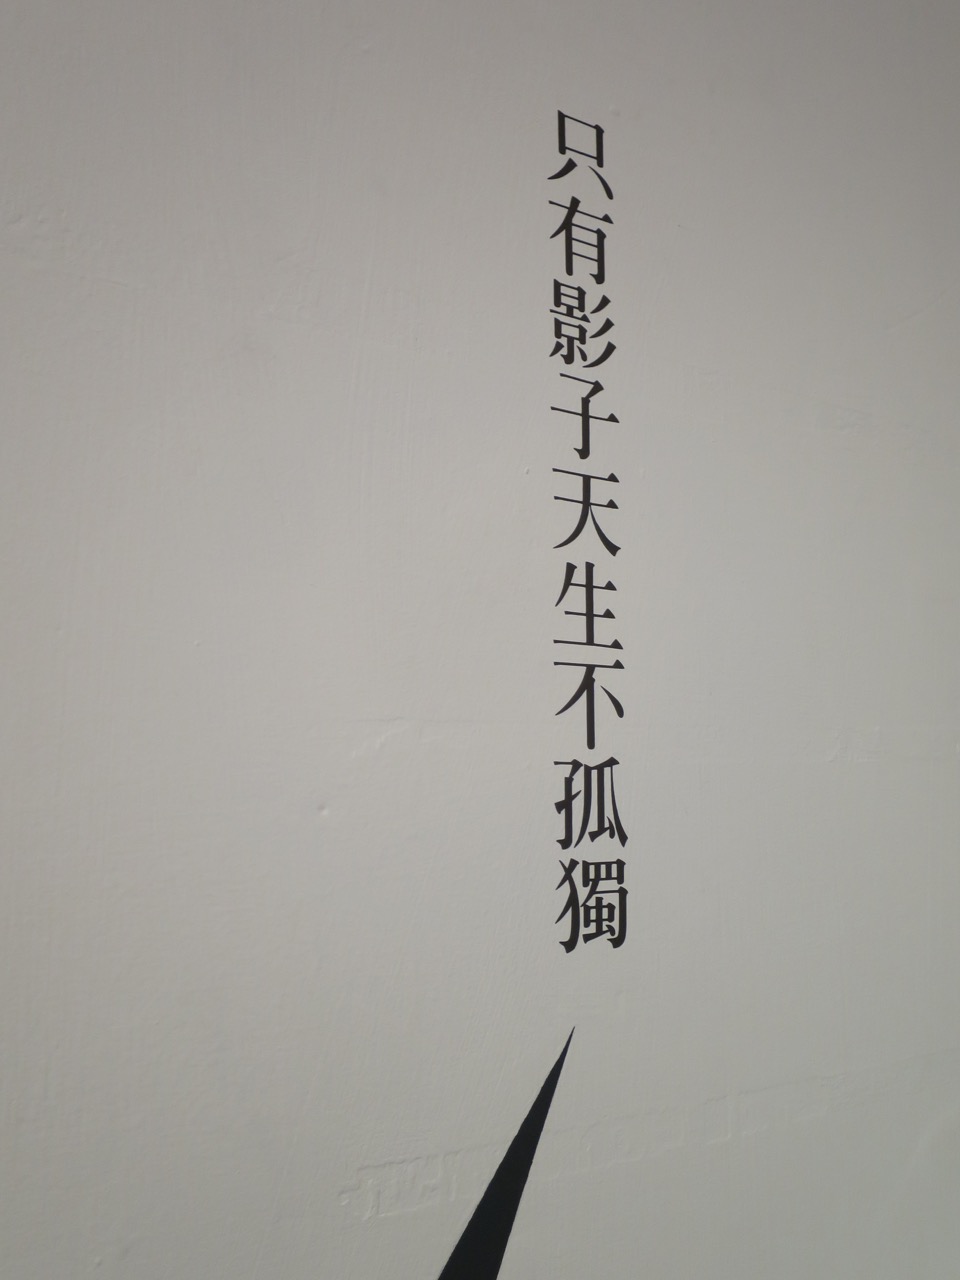 只有影子天生不孤獨